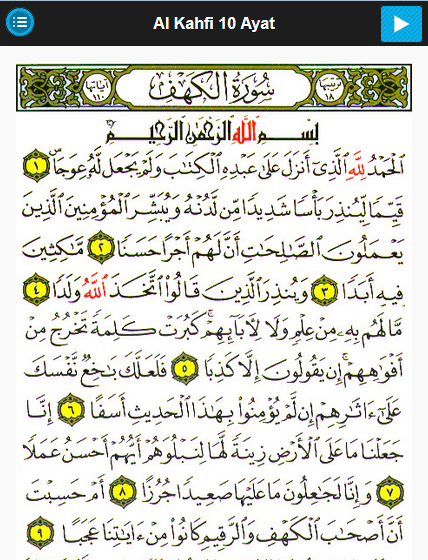 Al Kahfi 10 Ayat
ترتيبها ١٨ سُورَةُ الكَهْفِ آياتها ١١٠
بِسْمِ اللَّهِ الرَّحْمَٰنِ الرَّحِيمِ
الْحَمْدُ لِلَّهِ الَّذِي أَنزَلَ عَلَىٰ عَبْدِهِ الْكِتَابَ وَلَمْ يَجْعَل لَّهُ عِوَجًا ۜ ١
قَيِّمًا لِّيُنذِرَ بَأْسًا شَدِيدًا مِّن لَّدُنْهُ وَيُبَشِّرَ الْمُؤْمِنِينَ الَّذِينَ
يَعْمَلُونَ الصَّالِحَاتِ أَنَّ لَهُمْ أَجْرًا حَسَنًا ٢ مَّاكِثِينَ
فِيهِ أَبَدًا ٣ وَيُنذِرَ الَّذِينَ قَالُوا اتَّخَذَ اللَّهُ وَلَدًا ٤
مَّا لَهُم بِهِ مِنْ عِلْمٍ وَلَا لِآبَائِهِمْ ۚ كَبُرَتْ كَلِمَةً تَخْرُجُ مِنْ
أَفْوَاهِهِمْ ۚ إِن يَقُولُونَ إِلَّا كَذِبًا ٥ فَلَعَلَّكَ بَاخِعٌ نَّفْسَكَ
عَلَىٰ ءَاثَارِهِمْ إِن لَّمْ يُؤْمِنُوا بِهَٰذَا الْحَدِيثِ أَسَفًا ٦ إِنَّا
جَعَلْنَا مَا عَلَى الْأَرْضِ زِينَةً لَّهَا لِنَبْلُوَهُمْ أَيُّهُمْ أَحْسَنُ عَمَلًا
٧ وَإِنَّا لَجَاعِلُونَ مَا عَلَيْهَا صَعِيدًا جُرُزًا ٨ أَمْ حَسِبْتَ
أَنَّ أَصْحَابَ الْكَهْفِ وَالرَّقِيمِ كَانُوا مِنْ ءَايَاتِنَا عَجَبًا ٩